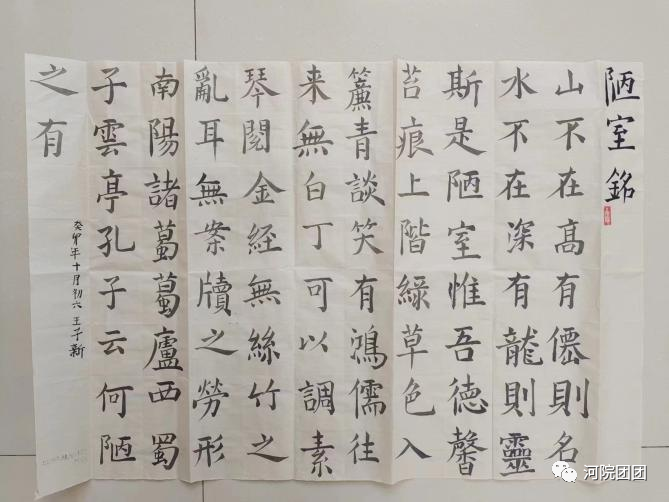 陋室銘
山不在高有僊則名
水不在深有龍則靈
斯是陋室惟吾德馨
苔痕上階綠草色入
簾青談笑有鴻儒往
来無白丁可以調素
琴閱金經無絲竹之
亂耳無案牘之勞形
南陽諸葛葛廬西蜀
子雲亭孔子云何陋
之有
癸卯年十月初六 王子新
河院团团